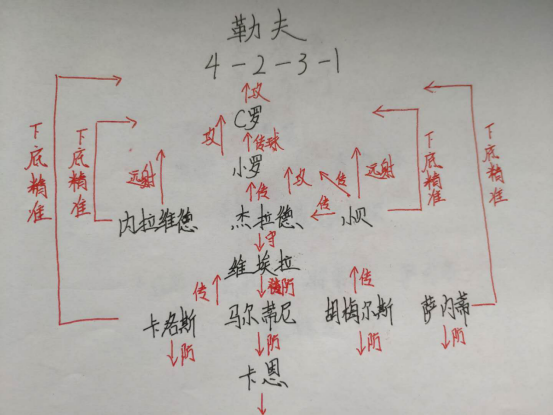 勒夫
4-2-3-1
攻
C罗
攻 传球
小罗
下底精准 下底精准 远射 传 攻 传 远射 下底精准 下底精准
内拉维德 杰拉德 传 小贝
守
维埃拉
传 防 传
卡洛斯 马尔蒂尼 胡梅尔斯 萨内蒂
防 防 防 防
卡恩